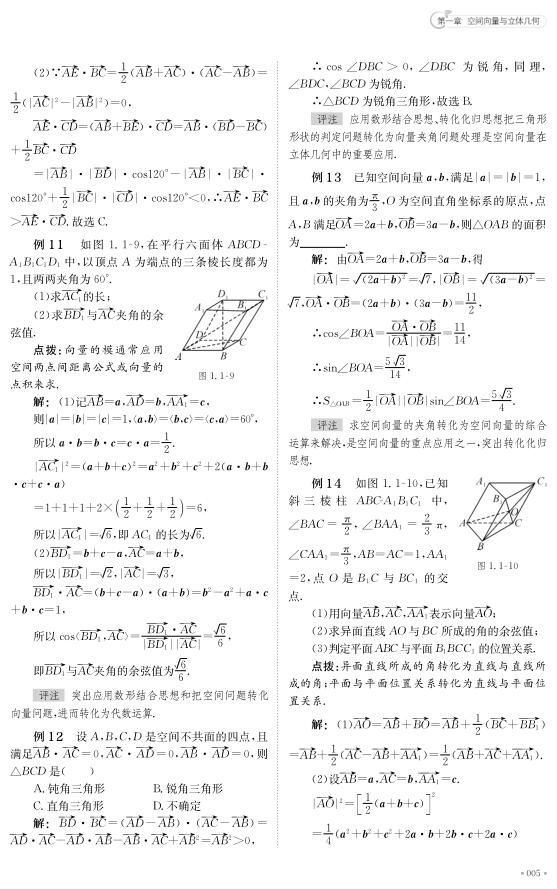 第一章 空间向量与立体几何
(2)∵$\overrightarrow{AE}$·$\overrightarrow{BC}$=$\frac{1}{2}$($\overrightarrow{AB}$+$\overrightarrow{AC}$)·($\overrightarrow{AC}$−$\overrightarrow{AB}$)=
$\frac{1}{2}$(|$\overrightarrow{AC}$|²−|$\overrightarrow{AB}$|²)=0,
$\overrightarrow{AE}$·$\overrightarrow{CD}$=($\overrightarrow{AB}$+$\overrightarrow{BE}$)·$\overrightarrow{CD}$=$\overrightarrow{AB}$·($\overrightarrow{BD}$−$\overrightarrow{BC}$)
+$\frac{1}{2}$$\overrightarrow{BC}$·$\overrightarrow{CD}$
=|$\overrightarrow{AB}$|·|$\overrightarrow{BD}$|·cos120°−|$\overrightarrow{AB}$|·|$\overrightarrow{BC}$|·
cos120°+$\frac{1}{2}$|$\overrightarrow{BC}$|·|$\overrightarrow{CD}$|·cos120°<0,∴$\overrightarrow{AE}$·$\overrightarrow{BC}$
>$\overrightarrow{AE}$·$\overrightarrow{CD}$.故选C.
例11 如图1.1-9,在平行六面体ABCD-
A₁B₁C₁D₁中,以顶点A为端点的三条棱长度都为
1,且两两夹角为60°.
(1)求$\overrightarrow{AC_1}$的长;
(2)求$\overrightarrow{BD_1}$与$\overrightarrow{AC}$夹角的余
弦值.
点拨:向量的模通常应用
空间两点间距离公式或向量的
点积来求.
D₁ C₁
A₁ B₁
D C
A B
图1.1-9
解:(1)记$\overrightarrow{AB}$=a,$\overrightarrow{AD}$=b,$\overrightarrow{AA_1}$=c,
则|a|=|b|=|c|=1,⟨a,b⟩=⟨b,c⟩=⟨c,a⟩=60°,
所以a·b=b·c=c·a=$\frac{1}{2}$.
|$\overrightarrow{AC_1}$|²=(a+b+c)²=a²+b²+c²+2(a·b+b
·c+c·a)
=1+1+1+2×($\frac{1}{2}$+$\frac{1}{2}$+$\frac{1}{2}$)=6,
所以|$\overrightarrow{AC_1}$|=$\sqrt{6}$,即AC₁的长为$\sqrt{6}$.
(2)$\overrightarrow{BD_1}$=b+c−a,$\overrightarrow{AC}$=a+b,
所以|$\overrightarrow{BD_1}$|=$\sqrt{2}$,|$\overrightarrow{AC}$|=$\sqrt{3}$,
$\overrightarrow{BD_1}$·$\overrightarrow{AC}$=(b+c−a)·(a+b)=b²−a²+a·c
+b·c=1,
所以cos⟨$\overrightarrow{BD_1}$,$\overrightarrow{AC}$⟩=$\frac{\overrightarrow{BD_1}·\overrightarrow{AC}}{|\overrightarrow{BD_1}||\overrightarrow{AC}|}$=$\frac{\sqrt{6}}{6}$,
即$\overrightarrow{BD_1}$与$\overrightarrow{AC}$夹角的余弦值为$\frac{\sqrt{6}}{6}$.
评注 突出应用数形结合思想和把空间问题转化
向量问题,进而转化为代数运算.
例12 设A,B,C,D是空间不共面的四点,且
满足$\overrightarrow{AB}$·$\overrightarrow{AC}$=0,$\overrightarrow{AC}$·$\overrightarrow{AD}$=0,$\overrightarrow{AB}$·$\overrightarrow{AD}$=0,则
△BCD是( )
A.钝角三角形 B.锐角三角形
C.直角三角形 D.不确定
解:$\overrightarrow{BD}$·$\overrightarrow{BC}$=($\overrightarrow{AD}$−$\overrightarrow{AB}$)·($\overrightarrow{AC}$−$\overrightarrow{AB}$)=
$\overrightarrow{AD}$·$\overrightarrow{AC}$−$\overrightarrow{AD}$·$\overrightarrow{AB}$−$\overrightarrow{AB}$·$\overrightarrow{AC}$+$\overrightarrow{AB}$²=$\overrightarrow{AB}$²>0,
∴cos∠DBC>0,∠DBC为锐角,同理,
∠BDC,∠BCD为锐角.
∴△BCD为锐角三角形,故选B.
评注 应用数形结合思想、转化化归思想把三角形
形状的判定问题转化为向量夹角问题处理是空间向量在
立体几何中的重要应用.
例13 已知空间向量a,b,满足|a|=|b|=1,
且a,b的夹角为$\frac{π}{3}$,O为空间直角坐标系的原点,点
A,B满足$\overrightarrow{OA}$=2a+b,$\overrightarrow{OB}$=3a−b,则△OAB的面积
为______.
解:由$\overrightarrow{OA}$=2a+b,$\overrightarrow{OB}$=3a−b,得
|$\overrightarrow{OA}$|=$\sqrt{(2a+b)^2}$=$\sqrt{7}$,|$\overrightarrow{OB}$|=$\sqrt{(3a-b)^2}$=
$\sqrt{7}$,$\overrightarrow{OA}$·$\overrightarrow{OB}$=(2a+b)·(3a−b)=$\frac{11}{2}$,
∴cos∠BOA=$\frac{\overrightarrow{OA}·\overrightarrow{OB}}{|\overrightarrow{OA}||\overrightarrow{OB}|}$=$\frac{11}{14}$,
∴sin∠BOA=$\frac{5\sqrt{3}}{14}$,
∴S△OAB=$\frac{1}{2}$|$\overrightarrow{OA}$||$\overrightarrow{OB}$|sin∠BOA=$\frac{5\sqrt{3}}{4}$.
评注 求空间向量的夹角转化为空间向量的综合
运算来解决,是空间向量的重点应用之一,突出转化化归
思想.
例14 如图1.1-10,已知
斜三棱柱ABC-A₁B₁C₁中,
∠BAC=$\frac{π}{2}$,∠BAA₁=$\frac{2}{3}$π,
∠CAA₁=$\frac{π}{3}$,AB=AC=1,AA₁
=2,点O是B₁C与BC₁的交
点.
A₁ C₁
B₁
O
A C
B
图1.1-10
(1)用向量$\overrightarrow{AB}$,$\overrightarrow{AC}$,$\overrightarrow{AA_1}$表示向量$\overrightarrow{AO}$;
(2)求异面直线AO与BC所成的角的余弦值;
(3)判定平面ABC与平面B₁BCC₁的位置关系.
点拨:异面直线所成的角转化为直线与直线所
成的角;平面与平面位置关系转化为直线与平面位
置关系.
解:(1)$\overrightarrow{AO}$=$\overrightarrow{AB}$+$\overrightarrow{BO}$=$\overrightarrow{AB}$+$\frac{1}{2}$($\overrightarrow{BC}$+$\overrightarrow{BB_1}$)
=$\overrightarrow{AB}$+$\frac{1}{2}$($\overrightarrow{AC}$−$\overrightarrow{AB}$+$\overrightarrow{AA_1}$)=$\frac{1}{2}$($\overrightarrow{AB}$+$\overrightarrow{AC}$+$\overrightarrow{AA_1}$).
(2)设$\overrightarrow{AB}$=a,$\overrightarrow{AC}$=b,$\overrightarrow{AA_1}$=c.
|$\overrightarrow{AO}$|²=[$\frac{1}{2}$(a+b+c)]²
=$\frac{1}{4}$(a²+b²+c²+2a·b+2b·c+2a·c)
·005·